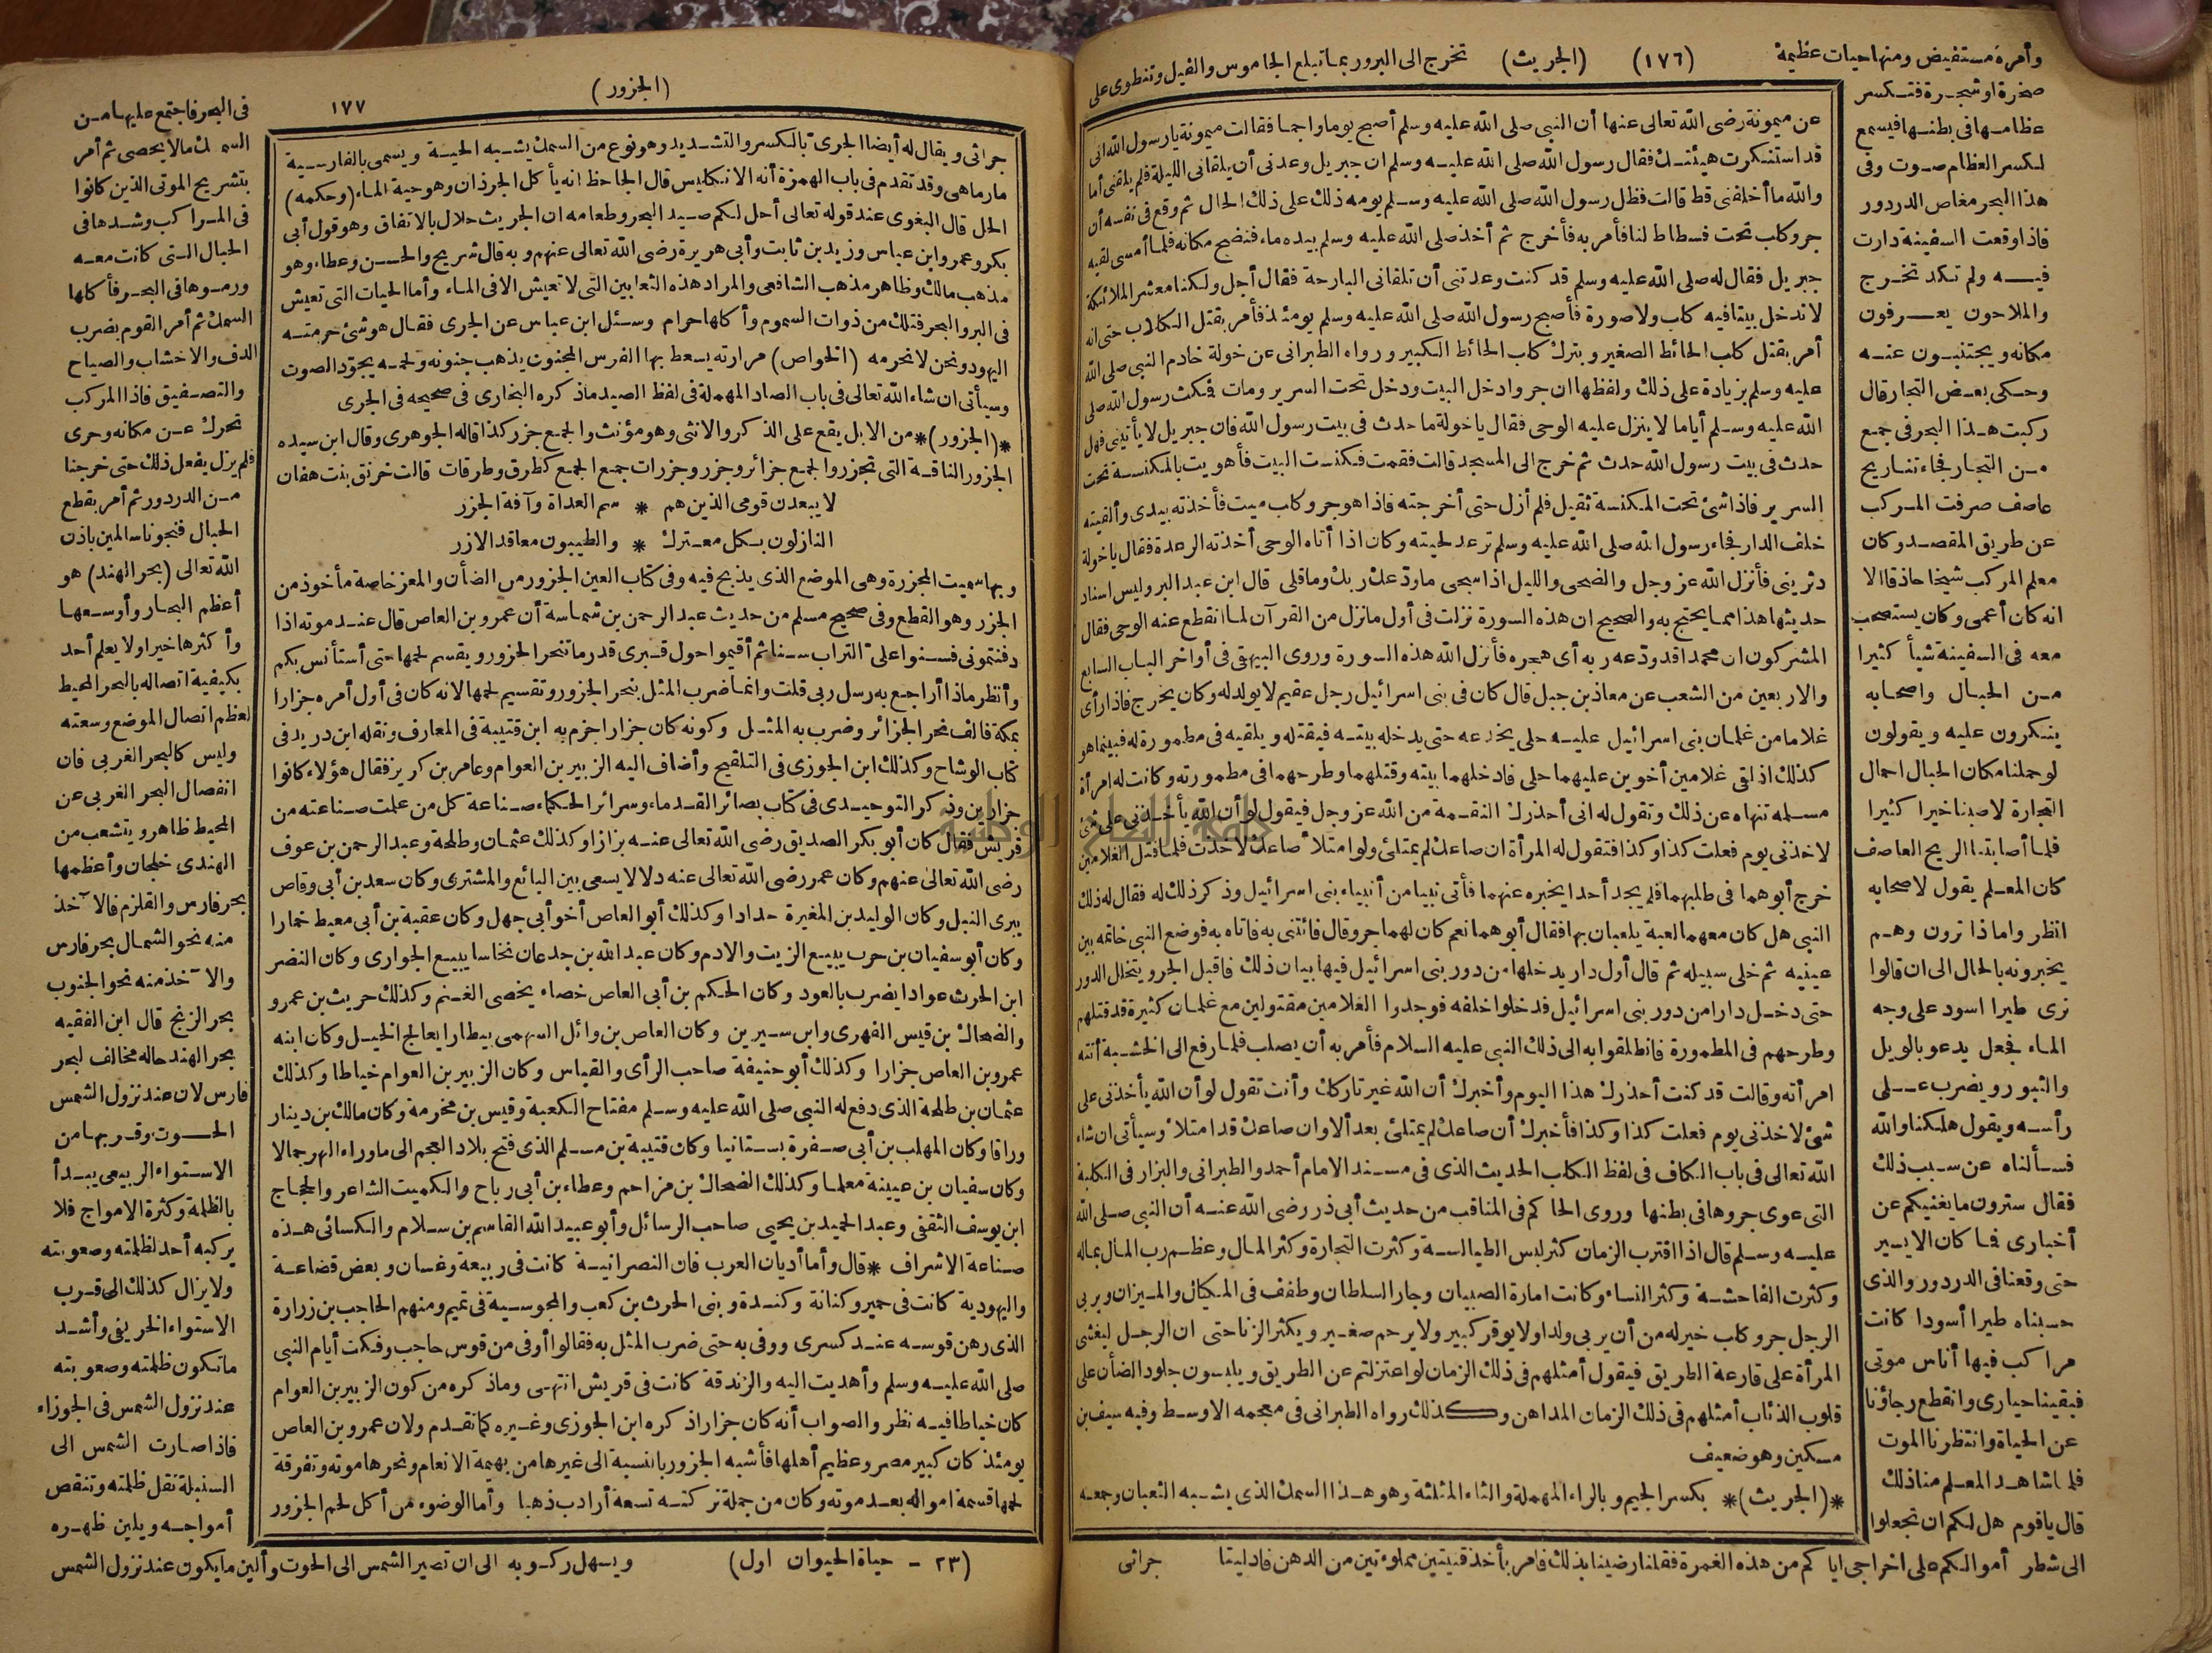 وأمره مستفيض ومنها حيات عظيمة (١٧٦) (الجريث) تخرج الى البرور بما تبلع الجاموس والفيل وتنطوى على
صخرة او شجرة فتكسر
عظامها فى بطنها فيسمع
لكسر العظام صوت وفى
هذا البحر مغاص الدردور
فاذا وقعت السفينة دارت
فيه ولم تكد تخرج
والملاحون يعرفون
مكانه ويجتنبون عنه
وحكى بعض التجار قال
ركبت هذا البحر فى جمع
من التجار فجاءتنا ريح
عاصف صرفت المركب
عن طريق المقصد وكان
معلم المركب شيخا حاذقا الا
انه كان أعمى وكان يستصحب
معه فى السفينة شيأ كثيرا
من الحبال واصحابه
ينكرون عليه ويقولون
لو حملنا مكان الحبال احمال
التجارة لاصبنا خيرا كثيرا
فلما أصابتنا الريح العاصف
كان المعلم يقول لاصحابه
انظروا ماذا ترون وهم
يخبرونه بالحال الى ان قالوا
نرى طيرا اسود على وجه
الماء فجعل يدعو بالويل
والثبور ويضرب على
رأسه ويقول هلكنا والله
فسألناه عن سبب ذلك
فقال سترون ما يغنيكم عن
أخبارى فما كان الا يسير
حتى وقعنا فى الدردور والذى
حسبناه طيرا أسودا كانت
مراكب فيها أناس موتى
فبقينا حيارى وانقطع رجاؤنا
عن الحياة وانتظرنا الموت
فلما شاهد المعلم منا ذلك
قال ياقوم هل لكم ان تجعلوا
الى شطر أموالكم على اخراجى اياكم من هذه الغمرة فقلنا رضينا بذلك فامر بأخذ قنينتين مملوءتين من الدهن فادليتا
عن ميمونة رضى الله تعالى عنها أن النبى صلى الله عليه وسلم أصبح يوما واجما فقالت ميمونة يا رسول الله انى
قد استنكرت هيئتك فقال رسول الله صلى الله عليه وسلم ان جبريل وعدنى أن يلقانى الليلة فلم يلقنى أما
والله ما أخلفنى قط قالت فظل رسول الله صلى الله عليه وسلم يومه ذلك على ذلك الحال ثم وقع فى نفسه أن
جرو كلب تحت فسطاط لنا فأمر به فأخرج ثم أخذ صلى الله عليه وسلم بيده ماء فنضح مكانه فلما أمسى لقيه
جبريل فقال له صلى الله عليه وسلم قد كنت وعدتنى أن تلقانى البارحة فقال أجل ولكنا معشر الملائكة
لا ندخل بيتا فيه كلب ولا صورة فأصبح رسول الله صلى الله عليه وسلم يومئذ فأمر بقتل الكلاب حتى انه
أمر بقتل كلب الحائط الصغير وبترك كلب الحائط الكبير ورواه الطبرانى عن خولة خادم النبى صلى الله
عليه وسلم بزيادة على ذلك ولفظها ان جروا دخل البيت ودخل تحت السرير ومات فمكث رسول الله صلى
الله عليه وسلم أياما لا ينزل عليه الوحى فقال يا خولة ما حدث فى بيت رسول الله فان جبريل لا يأتينى فهل
حدث فى بيت رسول الله حدث ثم خرج الى المسجد قالت فقمت فكنست البيت فأهويت بالمكنسة تحت
السرير فاذا شئ تحت المكنسة ثقيل فلم أزل حتى أخرجته فاذا هو جرو كلب ميت فأخذته بيدى وألقيته
خلف الدار فجاء رسول الله صلى الله عليه وسلم ترعد لحيته وكان اذا أتاه الوحى أخذته الرعدة فقال يا خولة
دثرينى فأنزل الله عز وجل والضحى والليل اذا سجى ما ودعك ربك وما قلى قال ابن عبد البر وليس اسناد
حديثها هذا مما يحتج به والصحيح ان هذه السورة نزلت فى أول ما نزل من القرآن لما انقطع عنه الوحى فقال
المشركون ان محمدا قد ودعه ربه أى هجره فأنزل الله هذه السورة وروى البيهقى فى أواخر الباب السابع
والاربعين من الشعب عن معاذ بن جبل قال كان فى بنى اسرائيل رجل عقيم لا يولد له وكان يخرج فاذا رأى
غلاما من غلمان بنى اسرائيل عليه حلى يخدعه حتى يدخله بيته فيقتله ويلقيه فى مطمورة له فبينما هو
كذلك اذ لقى غلامين أخوين عليهما حلى فادخلهما بيته وقتلهما وطرحهما فى مطمورته وكانت له امرأة
مسلمة تنهاه عن ذلك وتقول له انى أحذرك النقمة من الله عز وجل فيقول لو أن الله يأخذنى على شئ
لاخذنى يوم فعلت كذا وكذا فتقول له المرأة ان صاعك لم يمتلئ ولو امتلأ صاعك لأخذت فلما قتل الغلامين
خرج أبوهما فى طلبهما فلم يجد أحدا يخبره عنهما فأتى نبيا من أنبياء بنى اسرائيل وذكر ذلك له فقال له ذلك
النبى هل كان معهما لعبة يلعبان بها فقال أبوهما نعم كان لهما جرو قال فائتنى به فاتاه به فوضع النبى خاتمه بين
عينيه ثم خلى سبيله ثم قال أول دار يدخلها من دور بنى اسرائيل فيها بيان ذلك فاقبل الجرو يتخلل الدور
حتى دخل دارا من دور بنى اسرائيل فدخلوا خلفه فوجدوا الغلامين مقتولين مع غلمان كثيرة قد قتلهم
وطرحهم فى المطمورة فانطلقوا به الى ذلك النبى عليه السلام فأمر به أن يصلب فلما رفع الى الخشبة أتته
امرأته وقالت قد كنت أحذرك هذا اليوم وأخبرك أن الله غير تاركك وأنت تقول لو أن الله يأخذنى على
شئ لاخذنى يوم فعلت كذا وكذا فأخبرك أن صاعك لم يمتلئ بعد ألا وان صاعك قد امتلأ وسيأتى ان شاء
الله تعالى فى باب الكاف فى لفظ الكلب الحديث الذى فى مسند الامام أحمد والطبرانى والبزار فى الكلبة
التى عوى جروها فى بطنها وروى الحاكم فى المناقب من حديث أبى ذر رضى الله عنه أن النبى صلى الله
عليه وسلم قال اذا اقترب الزمان كثر لبس الطيالسة وكثرت التجارة وكثر المال وعظم رب المال بماله
وكثرت الفاحشة وكثر النساء وكانت امارة الصبيان وجار السلطان وطفف فى المكيال والميزان ويربى
الرجل جرو كلب خير له من أن يربى ولدا ولا يوقر كبير ولا يرحم صغير ويكثر الزنا حتى ان الرجل ليغشى
المرأة على قارعة الطريق فيقول أمثلهم فى ذلك الزمان لو اعتزلتم عن الطريق ويلبسون جلود الضأن على
قلوب الذئاب أمثلهم فى ذلك الزمان المداهن وكذلك رواه الطبرانى فى معجمه الاوسط وفيه سيف بن
مسكين وهو ضعيف
*(الجريث)* بكسر الجيم وبالراء المهملة والثاء المثلثة وهو هذا السمك الذى يشبه الثعبان وجمعه
جراثى
(الجزور) ١٧٧
جراثى ويقال له أيضا الجرى بالكسر والتشديد وهو نوع من السمك يشبه الحية ويسمى بالفارسية
مارماهى وقد تقدم فى باب الهمزة أنه الانكليس قال الجاحظ انه يأكل الجرذان وهو حية الماء (وحكمه)
الحل قال البغوى عند قوله تعالى أحل لكم صيد البحر وطعامه ان الجريث حلال بالاتفاق وهو قول أبى
بكر وعمر وابن عباس وزيد بن ثابت وأبى هريرة رضى الله تعالى عنهم وبه قال شريح والحسن وعطاء وهو
مذهب مالك وظاهر مذهب الشافعى والمراد هذه الثعابين التى لا تعيش الا فى الماء وأما الحيات التى تعيش
فى البر والبحر فتلك من ذوات السموم وأكلها حرام وسئل ابن عباس عن الجرى فقال هو شئ حرمته
اليهود ونحن لا نحرمه (الخواص) مرارته يسعط بها الفرس المجنون يذهب جنونه ولحمه يجود الصوت
وسيأتى ان شاء الله تعالى فى باب الصاد المهملة فى لفظ الصيد ما ذكره البخارى فى صحيحه فى الجرى
*(الجزور)* من الابل يقع على الذكر والانثى وهو مؤنث والجمع جزر كذا قاله الجوهرى وقال ابن سيده
الجزور الناقة التى تجزر والجمع جزائر وجزر وجزرات جمع الجمع كطرق وطرقات قالت خرنق بنت هفان
لا يبعدن قومى الذين هم * سم العداة وآفة الجزر
النازلون بكل معترك * والطيبون معاقد الازر
وبها سميت المجزرة وهى الموضع الذى يذبح فيه وفى كتاب العين الجزور من الضأن والمعز خاصة مأخوذ من
الجزر وهو القطع وفى صحيح مسلم من حديث عبد الرحمن بن شماسة أن عمرو بن العاص قال عند موته اذا
دفنتمونى فسنوا على التراب سنا ثم أقيموا حول قبرى قدر ما تنحر الجزور ويقسم لحمها حتى أستأنس بكم
وأنظر ماذا أراجع به رسل ربى قلت وانما ضرب المثل بنحر الجزور وتقسيم لحمها لانه كان فى أول أمره جزارا
بمكة فالف نحر الجزائر وضرب به المثل وكونه كان جزارا جزم به ابن قتيبة فى المعارف ونقله ابن دريد فى
كتاب الوشاح وكذلك ابن الجوزى فى التلقيح وأضاف اليه الزبير بن العوام وعامر بن كريز فقال هؤلاء كانوا
جزارين وذكر التوحيدى فى كتاب بصائر القدماء وسرائر الحكماء صناعة كل من علمت صناعته من
قريش فقال كان أبو بكر الصديق رضى الله تعالى عنه بزازا وكذلك عثمان وطلحة وعبد الرحمن بن عوف
رضى الله تعالى عنهم وكان عمر رضى الله تعالى عنه دلالا يسعى بين البائع والمشترى وكان سعد بن أبى وقاص
يبرى النبل وكان الوليد بن المغيرة حدادا وكذلك أبو العاص أخو أبى جهل وكان عقبة بن أبى معيط خمارا
وكان أبو سفيان بن حرب يبيع الزيت والادم وكان عبد الله بن جدعان نخاسا يبيع الجوارى وكان النضر
ابن الحرث عوادا يضرب بالعود وكان الحكم بن أبى العاص خصاء يخصى الغنم وكذلك حريث بن عمرو
والضحاك بن قيس الفهرى وابن سيرين وكان العاص بن وائل السهمى بيطارا يعالج الخيل وكان ابنه
عمرو بن العاص جزارا وكذلك أبو حنيفة صاحب الرأى والقياس وكان الزبير بن العوام خياطا وكذلك
عثمان بن طلحة الذى دفع له النبى صلى الله عليه وسلم مفتاح الكعبة وقيس بن مخرمة وكان مالك بن دينار
وراقا وكان المهلب بن أبى صفرة بستانيا وكان قتيبة بن مسلم الذى فتح بلاد العجم الى ما وراء النهر جمالا
وكان سفيان بن عيينة معلما وكذلك الضحاك بن مزاحم وعطاء بن أبى رباح والكميت الشاعر والحجاج
ابن يوسف الثقفى وعبد الحميد بن يحيى صاحب الرسائل وأبو عبيد الله القاسم بن سلام والكسائى هذه
صناعة الاشراف * قال وأما أديان العرب فان النصرانية كانت فى ربيعة وغسان وبعض قضاعة
واليهودية كانت فى حمير وكنانة وكندة وبنى الحرث بن كعب والمجوسية فى تميم ومنهم الحاجب بن زرارة
الذى رهن قوسه عند كسرى ووفى به حتى ضرب المثل به فقالوا أوفى من قوس حاجب وفكت أيام النبى
صلى الله عليه وسلم وأهديت اليه والزندقة كانت فى قريش انتهى وما ذكره من كون الزبير بن العوام
كان خياطا فيه نظر والصواب أنه كان جزارا ذكره ابن الجوزى وغيره كما تقدم ولان عمرو بن العاص
يومئذ كان كبير مصر وعظيم أهلها فأشبه الجزور بالنسبة الى غيرها من بهيمة الانعام ونحرها موته وتفرقة
لحمها قسمة امواله بعد موته وكان من جملة تركته تسعة أرادب ذهبا وأما الوضوء من أكل لحم الجزور
فى البحر فاجتمع عليها من
السمك ما لا يحصى ثم أمر
بتشريح الموتى الذين كانوا
فى المراكب وشدها فى
الحبال التى كانت معه
ورموها فى البحر فأكلها
السمك ثم أمر القوم بضرب
الدف والاخشاب والصياح
والتصفيق فاذا المركب
تحرك عن مكانه وجرى
فلم يزل يفعل ذلك حتى خرجنا
من الدردور ثم أمر بقطع
الحبال فنجونا سالمين باذن
الله تعالى (بحر الهند) هو
أعظم البحار وأوسعها
وأكثرها خيرا ولا يعلم أحد
بكيفية اتصاله بالبحر المحيط
لعظم اتصال الموضع وسعته
وليس كالبحر الغربى فان
انفصال البحر الغربى عن
المحيط ظاهر ويتشعب من
الهندى خلجان وأعظمها
بحر فارس والقلزم فالآخذ
منه نحو الشمال بحر فارس
والآخذ منه نحو الجنوب
بحر الزنج قال ابن الفقيه
بحر الهند حاله مخالف لبحر
فارس لان عند نزول الشمس
الحوت وقربها من
الاستواء الربيعى يبدأ
بالظلمة وكثرة الامواج فلا
يركبه أحد لظلمته وصعوبته
ولا يزال كذلك الى قرب
الاستواء الخريفى وأشد
ما تكون ظلمته وصعوبته
عند نزول الشمس فى الجوزاء
فاذا صارت الشمس الى
السنبلة تقل ظلمته وتنقص
أمواجه ويلين ظهره
ويسهل ركوبه الى ان تصير الشمس الى الحوت وألين ما يكون عند نزول الشمس
(٢٣ - حياة الحيوان اول)
جامعة النجاح الوطنية